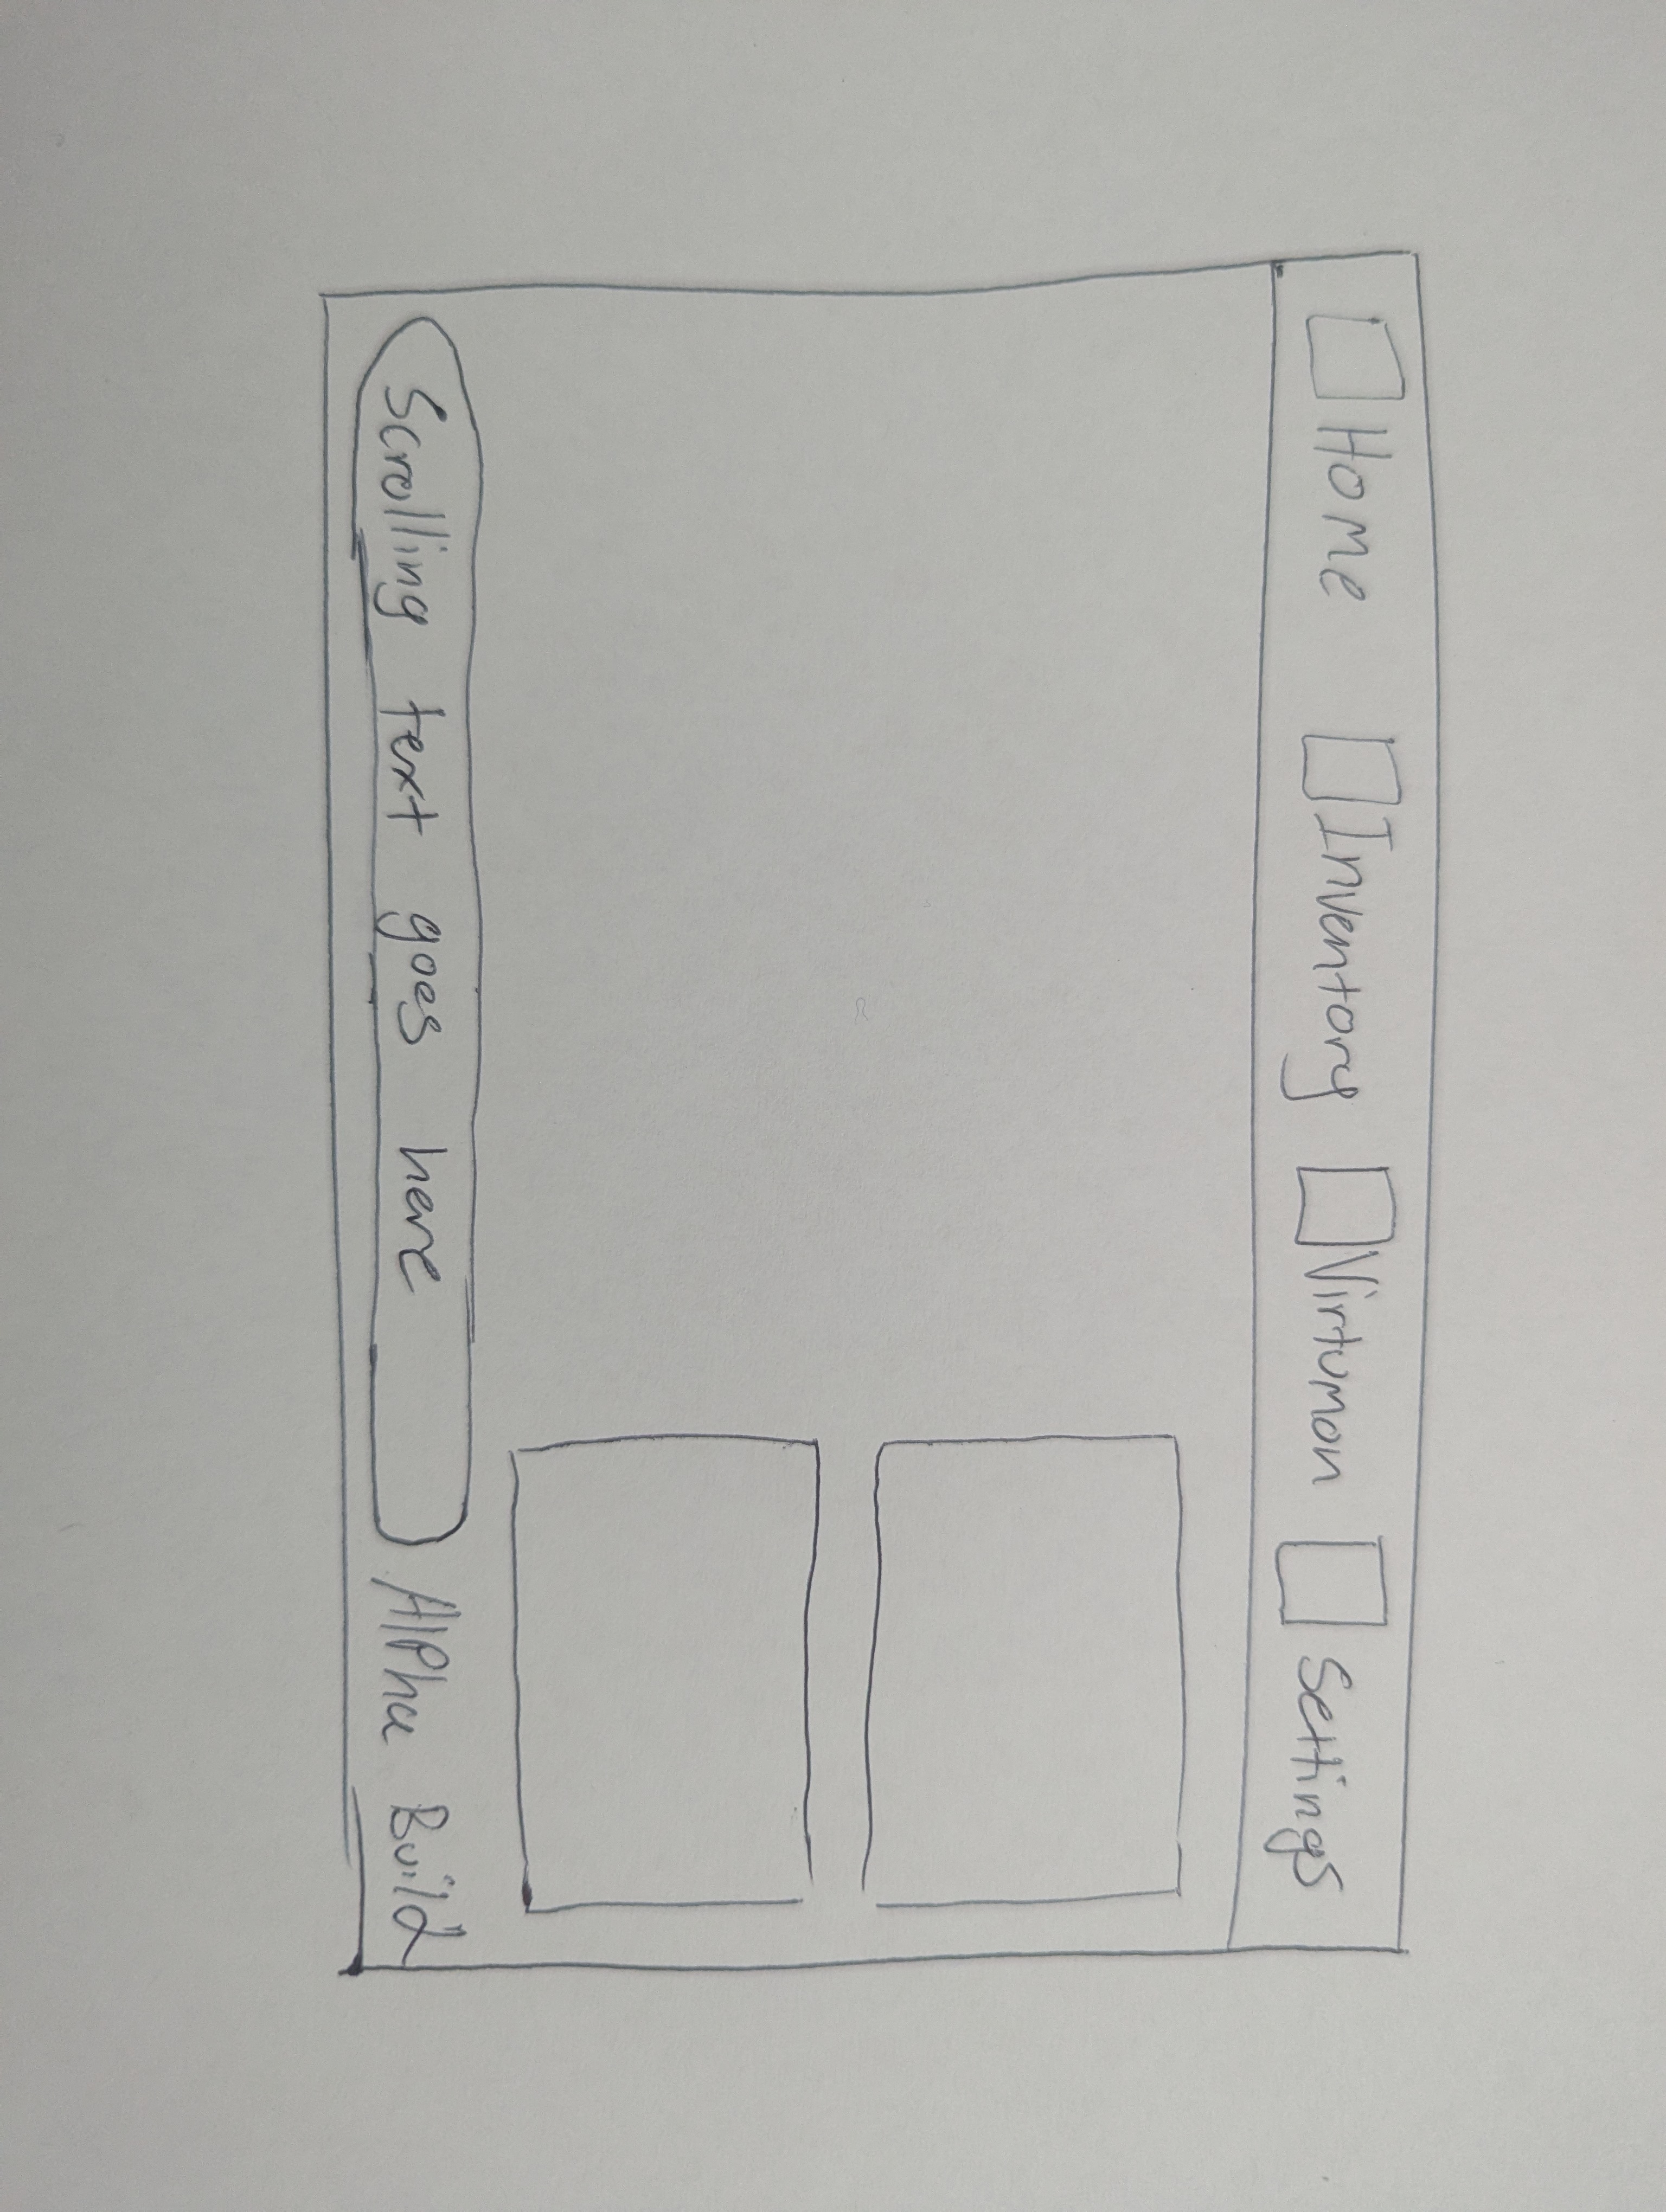 Home Inventory Virtumon Settings
Scrolling text goes here Alpha Build